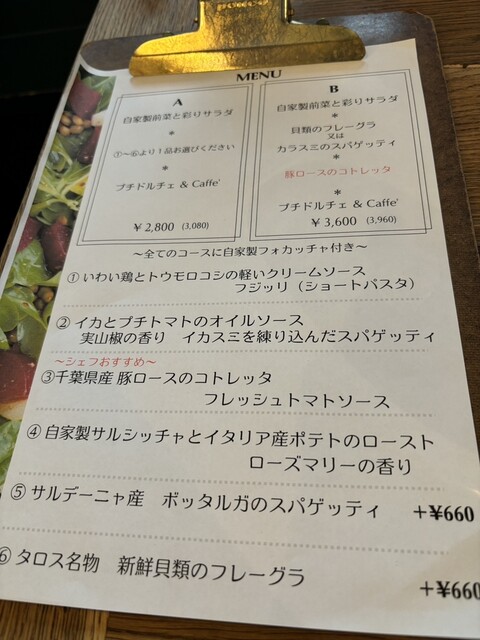 MENU
A
自家製前菜と彩りサラダ
*
①～⑥より1品お選びください
*
プチドルチェ & Caffe'
￥2,800 (3,080)
B
自家製前菜と彩りサラダ
*
貝類のフレーグラ
又は
カラスミのスパゲッティ
*
豚ロースのコトレッタ
*
プチドルチェ & Caffe'
￥3,600 (3,960)
～全てのコースに自家製フォカッチャ付き～
① いわい鶏とトウモロコシの軽いクリームソース
フジッリ（ショートパスタ）
② イカとプチトマトのオイルソース
実山椒の香り イカスミを練り込んだスパゲッティ
～シェフおすすめ～
③千葉県産 豚ロースのコトレッタ
フレッシュトマトソース
④ 自家製サルシッチャとイタリア産ポテトのロースト
ローズマリーの香り
⑤ サルデーニャ産 ボッタルガのスパゲッティ +¥660
⑥ タロス名物 新鮮貝類のフレーグラ +¥660